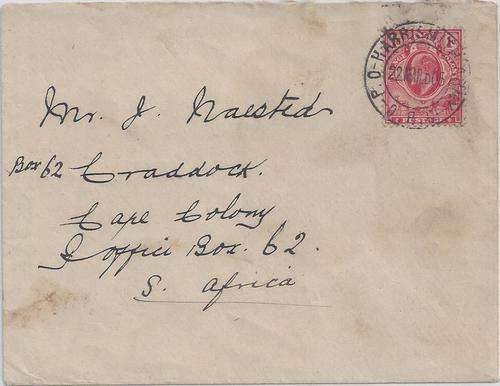 Mr. J. Naested
Box 62 Craddock.
Cape Colony
P office Box. 62.
S. Africa